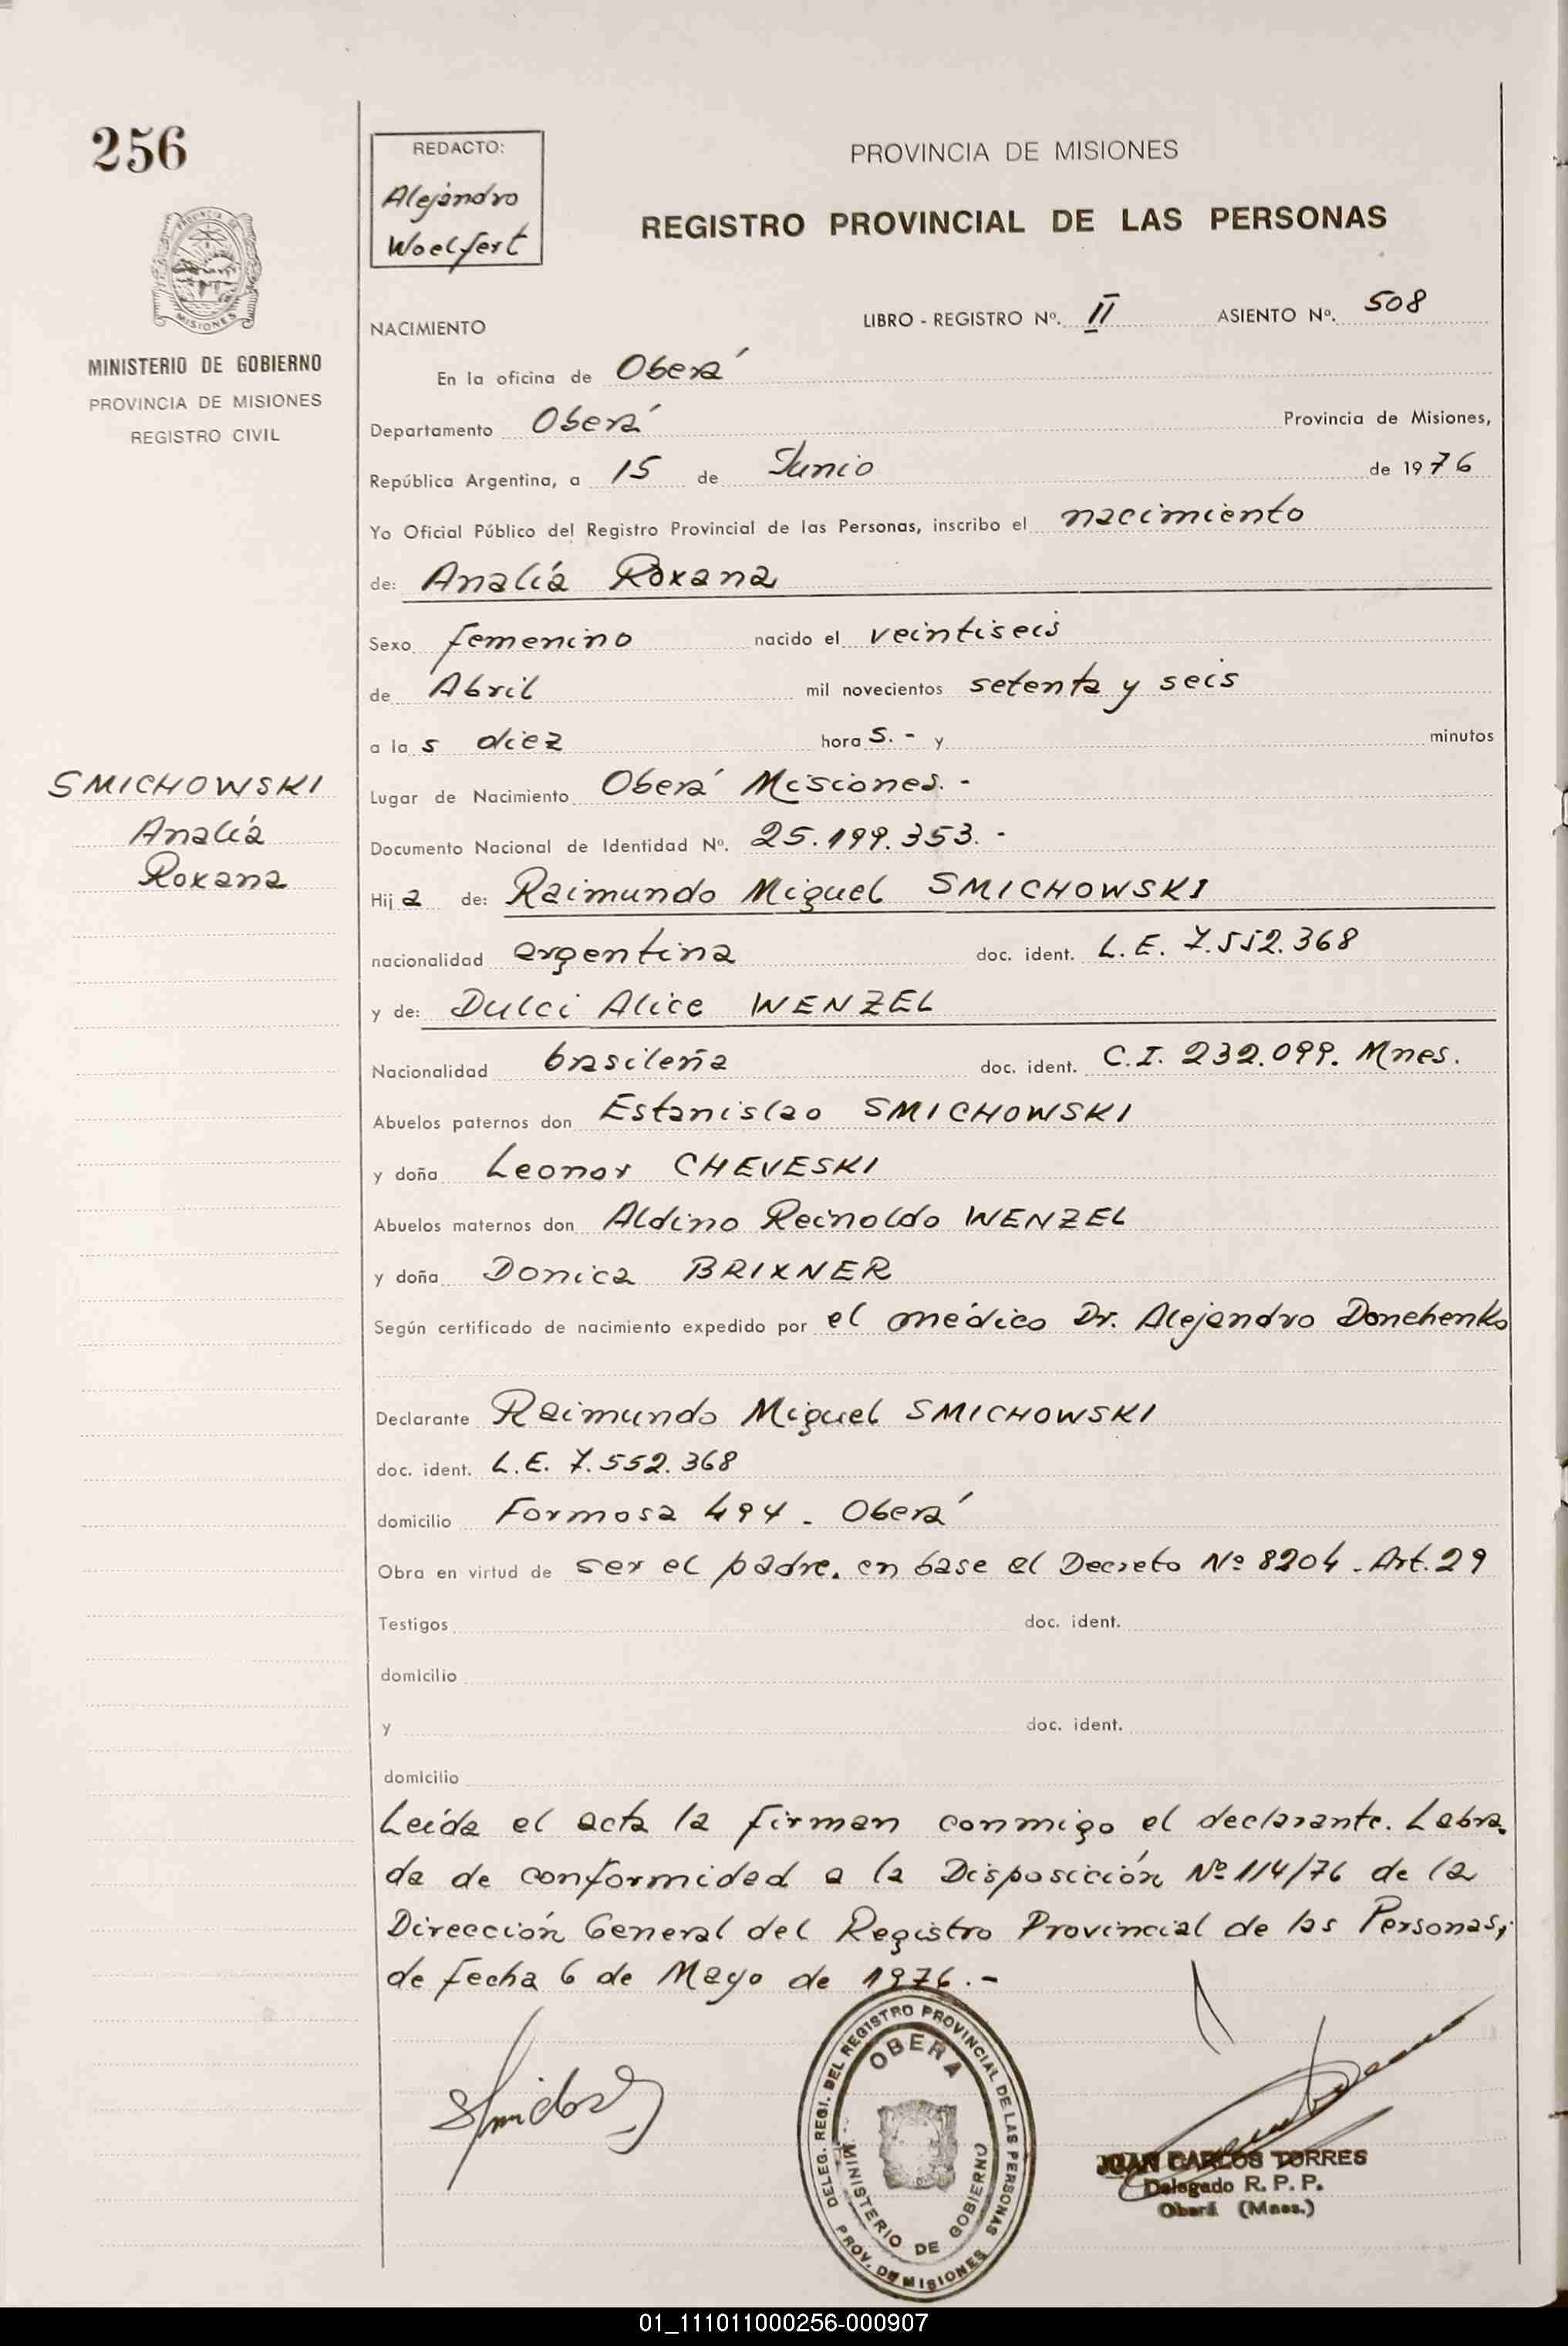 256
REDACTO:
Alejandro
Woelfert
PROVINCIA DE MISIONES
REGISTRO PROVINCIAL DE LAS PERSONAS
PROVINCIA DE
MISIONES
MINISTERIO DE GOBIERNO
PROVINCIA DE MISIONES
REGISTRO CIVIL
NACIMIENTO LIBRO - REGISTRO Nº. II ASIENTO Nº. 508
En la oficina de Oberá
Departamento Oberá Provincia de Misiones,
República Argentina, a 15 de Junio de 1976
Yo Oficial Público del Registro Provincial de las Personas, inscribo el nacimiento
de: Analía Roxana
Sexo femenino nacido el veintiseis
de Abril mil novecientos setenta y seis
a la s diez hora s. - y minutos
Lugar de Nacimiento Oberá Misiones. -
Documento Nacional de Identidad Nº. 25.199.353. -
SMICHOWSKI
Analía
Roxana
Hij a de: Raimundo Miguel SMICHOWSKI
nacionalidad argentina doc. ident. L.E. 7.552.368
y de: Dulci Alice WENZEL
Nacionalidad brasileña doc. ident. C.I. 232.099. Mnes.
Abuelos paternos don Estanislao SMICHOWSKI
y doña Leonor CHEVESKI
Abuelos maternos don Aldino Reinoldo WENZEL
y doña Donica BRIXNER
Según certificado de nacimiento expedido por el médico Dr. Alejandro Donehenko
Declarante Raimundo Miguel SMICHOWSKI
doc. ident. L.E. 7.552.368
domicilio Formosa 494 - Oberá
Obra en virtud de ser el padre. en base al Decreto Nº 8204 - Art. 29
Testigos doc. ident.
domicilio
y doc. ident.
domicilio
Leída el acta la firman conmigo el declarante. Labra-
da de conformidad a la Disposición Nº 114/76 de la
Dirección General del Registro Provincial de las Personas,
de fecha 6 de Mayo de 1976. -
DELEG. REGI. DEL REGISTRO PROVINCIAL DE LAS PERSONAS
OBERA
MINISTERIO DE GOBIERNO
PROV. DE MISIONES
JUAN CARLOS TORRES
Delegado R. P. P.
Oberá (Mnes.)
01_111011000256-000907